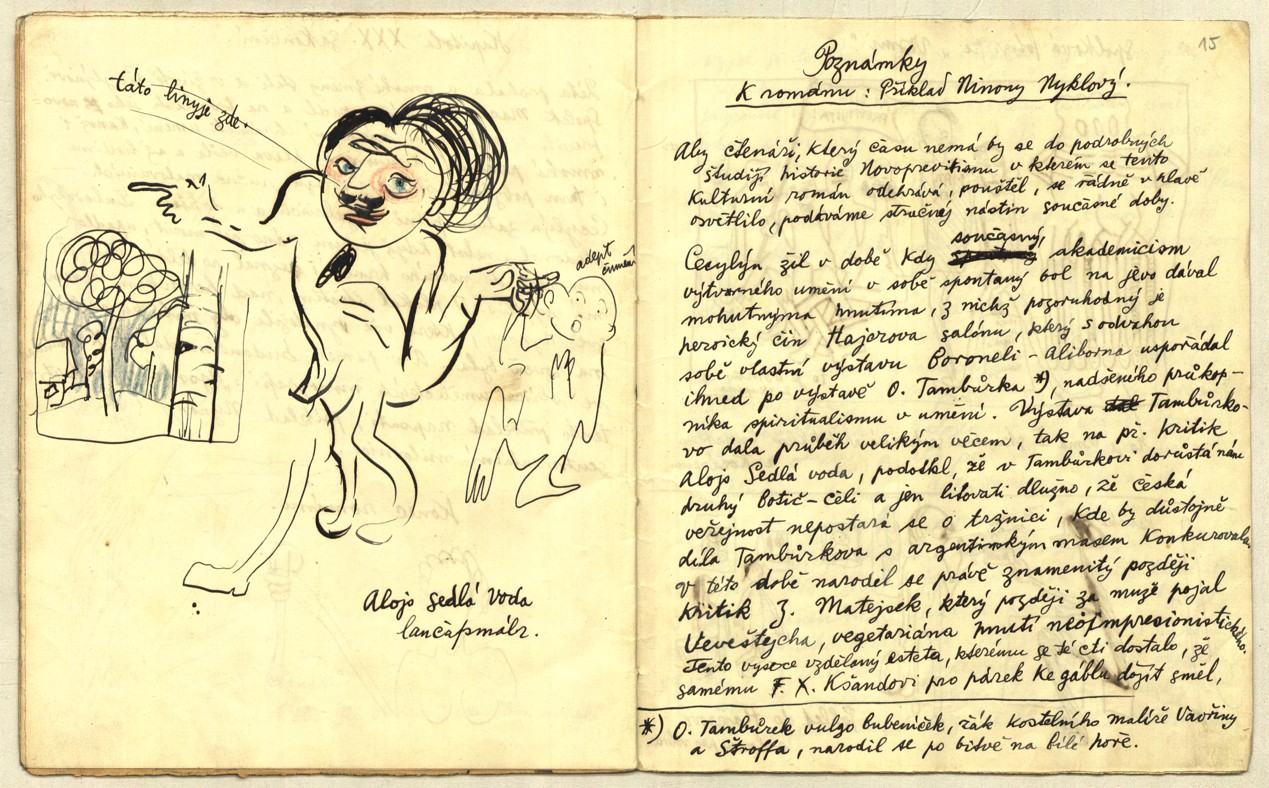 táto linyje zde.
adept
Alojs Sedlá Voda
lančàpmálr.
15
Poznámky
K románu: Příklad Ninony Nyklový!
Aby čtenáři, který času nemá by se do podrobných
študijí historie Novoprevitismu v kterém se tento
kulturní román odehrává, pouštěl, se řádně v hlavě
osvětlilo, podáváme stručnej nástin současné doby.
současný,
Cecylýn žil v době kdy akademicism
výtvarného umění v sobě spontaný bol na jevo dával
mohutnýma hnutíma, z nichž pozoruhodný je
heroický čin Hajzrova salónu, který s odvahou
sobě vlastní výstavu Boroneli - Aliborna uspořádal
ihned po výstavě O. Tambůrka *), nadšeného průkop-
níka spiritualismu v umění. Výstava Tambůrko-
vo dala průběh velikým věcem, tak na př. kritik
Alojs Sedlá voda, podotkl, že v Tambůrkovi dorůstá nám
druhý Botič-čeli a jen litovati dlužno, že česká
veřejnost nepostará se o tržnici, kde by důstojně
díla Tambůrkova s argentinským masem konkurovala.
v této době narodil se právě znamenitý později
kritik J. Matejsek, který později za muže pojal
Ueveštejcha, vegetariána hnutí neoimpresionistického.
Tento vysoce vzdělaný esteta, kterému se té cti dostalo, že
samému F. X. Kšandovi pro párek ke gáblu dojít směl,
*) O. Tambůrek vulgo bubeníček, žák kostelního malíře Vavřiny
a Štroffa, narodil se po bitvě na bílé hoře.